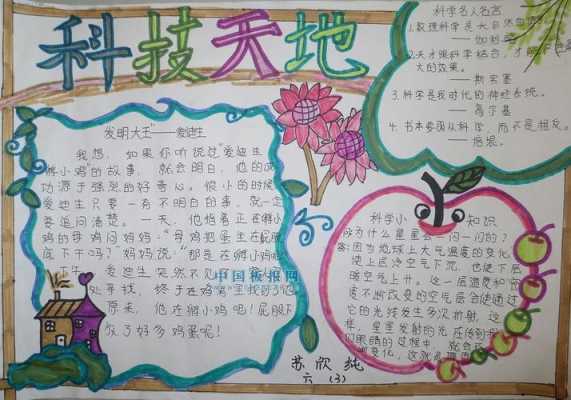 科技天地
科学名人名言
1.数理科学是大自然
——伽利略
2.天才跟科学结合,才能
大的效果。
——斯宾塞
3.科学是我时代的神经系统。
——高尔基
4.书本要跟从科学,而不是相反。
——培根。
“发明大王”——爱迪生
我想,如果你听说过“爱迪生
孵小鸡”的故事,就会明白,他的成
功源于强烈的好奇心。很小的时候
爱迪生只要一有不明白的事,就一定
要追问清楚。一天,他指着正在孵小
鸡的母鸡问妈妈:“母鸡把蛋坐在屁股
底下干吗?”妈妈说:“那是在孵小鸡呢
爱迪生突然不见了
处寻找,终于在鸡窝里找到了他
原来,他在孵小鸡呢!屁股下
放了好多鸡蛋呢!
中国板报网
科学小知识
为什么星星会一闪一闪的?
答:因为地球上大气温度的变化,
使上层冷空气下沉,也使下层
暖空气上升。这一层温度和密
度不断改变的空气层会使通过
它的光线发生多次折射,这
样,星星发射的光在传到
们眼睛的过程中,就会
变化,这就是
苏欣纯
六(3)